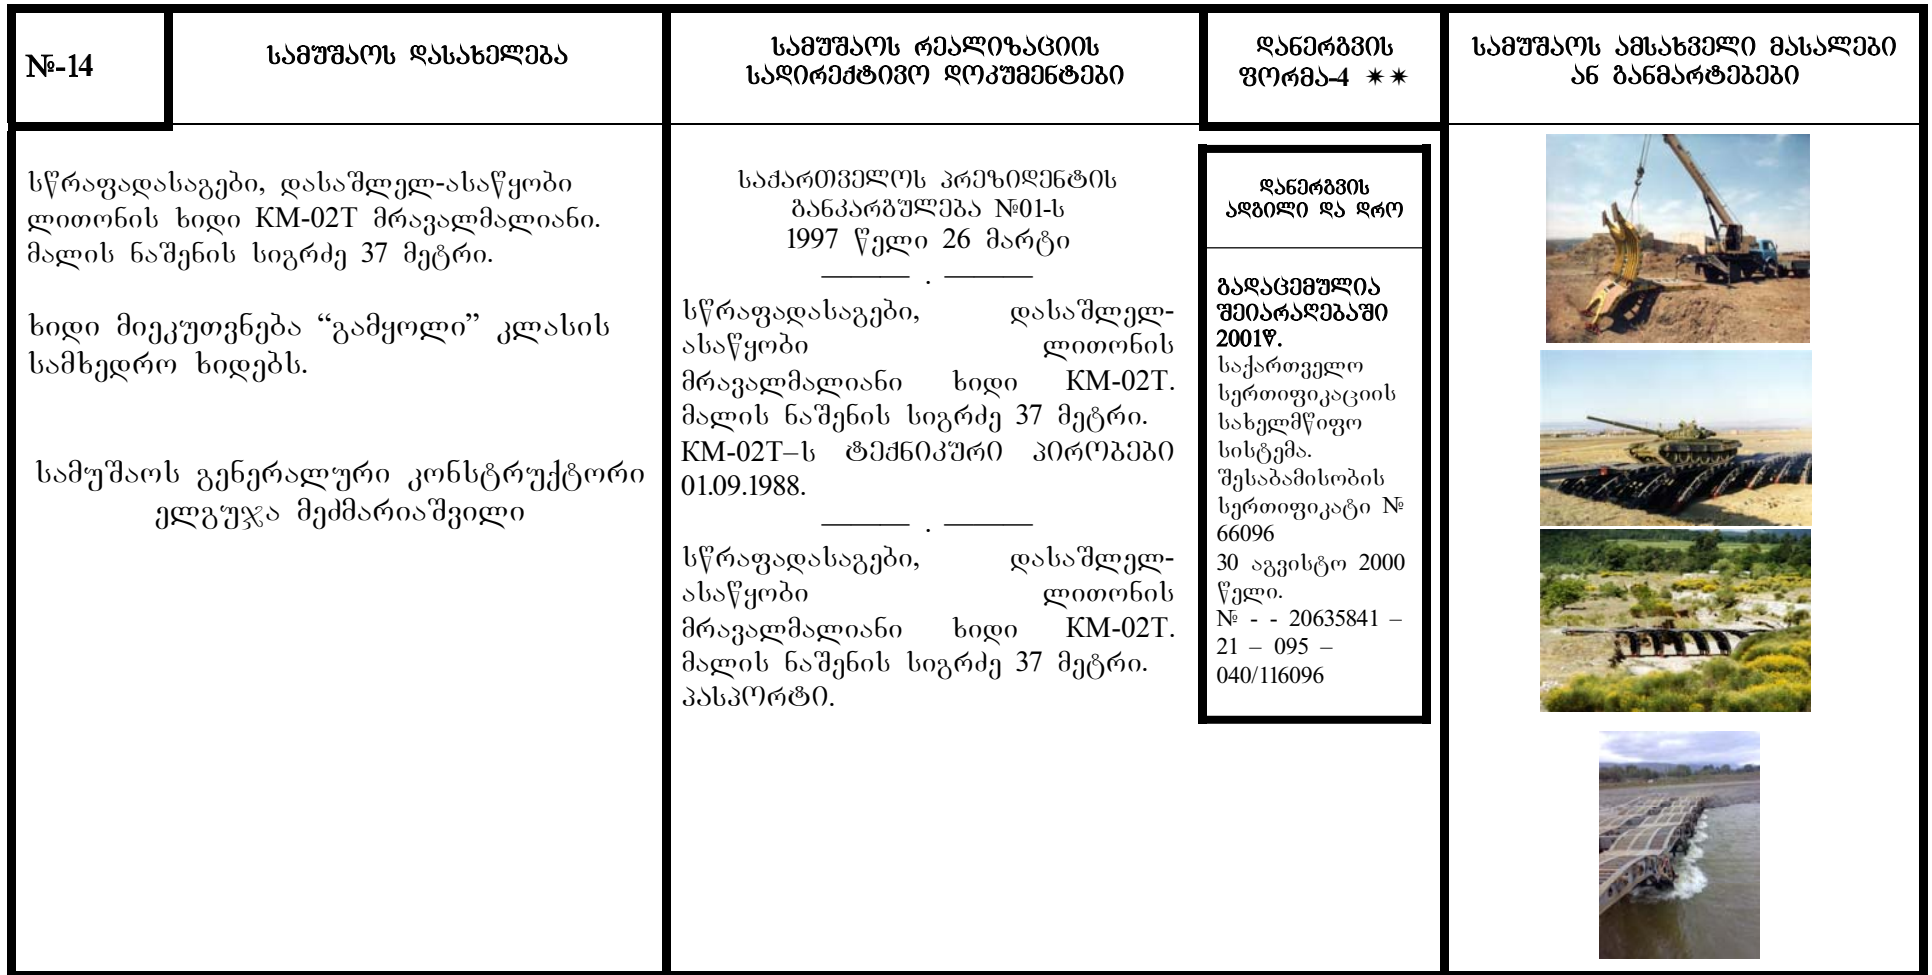 №-14
სამუშაოს დასახელება
სამუშაოს რეალიზაციის
სადირექტივო დოკუმენტები
დანერგვის
ფორმა-4 ✶✶
სამუშაოს ამსახველი მასალები
ან განმარტებები
სწრაფადასაგები, დასაშლელ-ასაწყობი
ლითონის ხიდი КМ-02Т მრავალმალიანი.
მალის ნაშენის სიგრძე 37 მეტრი.
ხიდი მიეკუთვნება “გამყოლი” კლასის
სამხედრო ხიდებს.
სამუშაოს გენერალური კონსტრუქტორი
ელგუჯა მეძმარიაშვილი
საქართველოს პრეზიდენტის
განკარგულება №01-ს
1997 წელი 26 მარტი
——— . ———
სწრაფადასაგები, დასაშლელ-
ასაწყობი ლითონის
მრავალმალიანი ხიდი КМ-02Т.
მალის ნაშენის სიგრძე 37 მეტრი.
КМ-02Т–ს ტექნიკური პირობები
01.09.1988.
——— . ———
სწრაფადასაგები, დასაშლელ-
ასაწყობი ლითონის
მრავალმალიანი ხიდი КМ-02Т.
მალის ნაშენის სიგრძე 37 მეტრი.
პასპორტი.
დანერგვის
ადგილი და დრო
გადაცემულია
შეიარაღებაში
2001წ.
საქართველო
სერთიფიკაციის
სახელმწიფო
სისტემა.
შესაბამისობის
სერთიფიკატი №
66096
30 აგვისტო 2000
წელი.
№ - - 20635841 –
21 – 095 –
040/116096